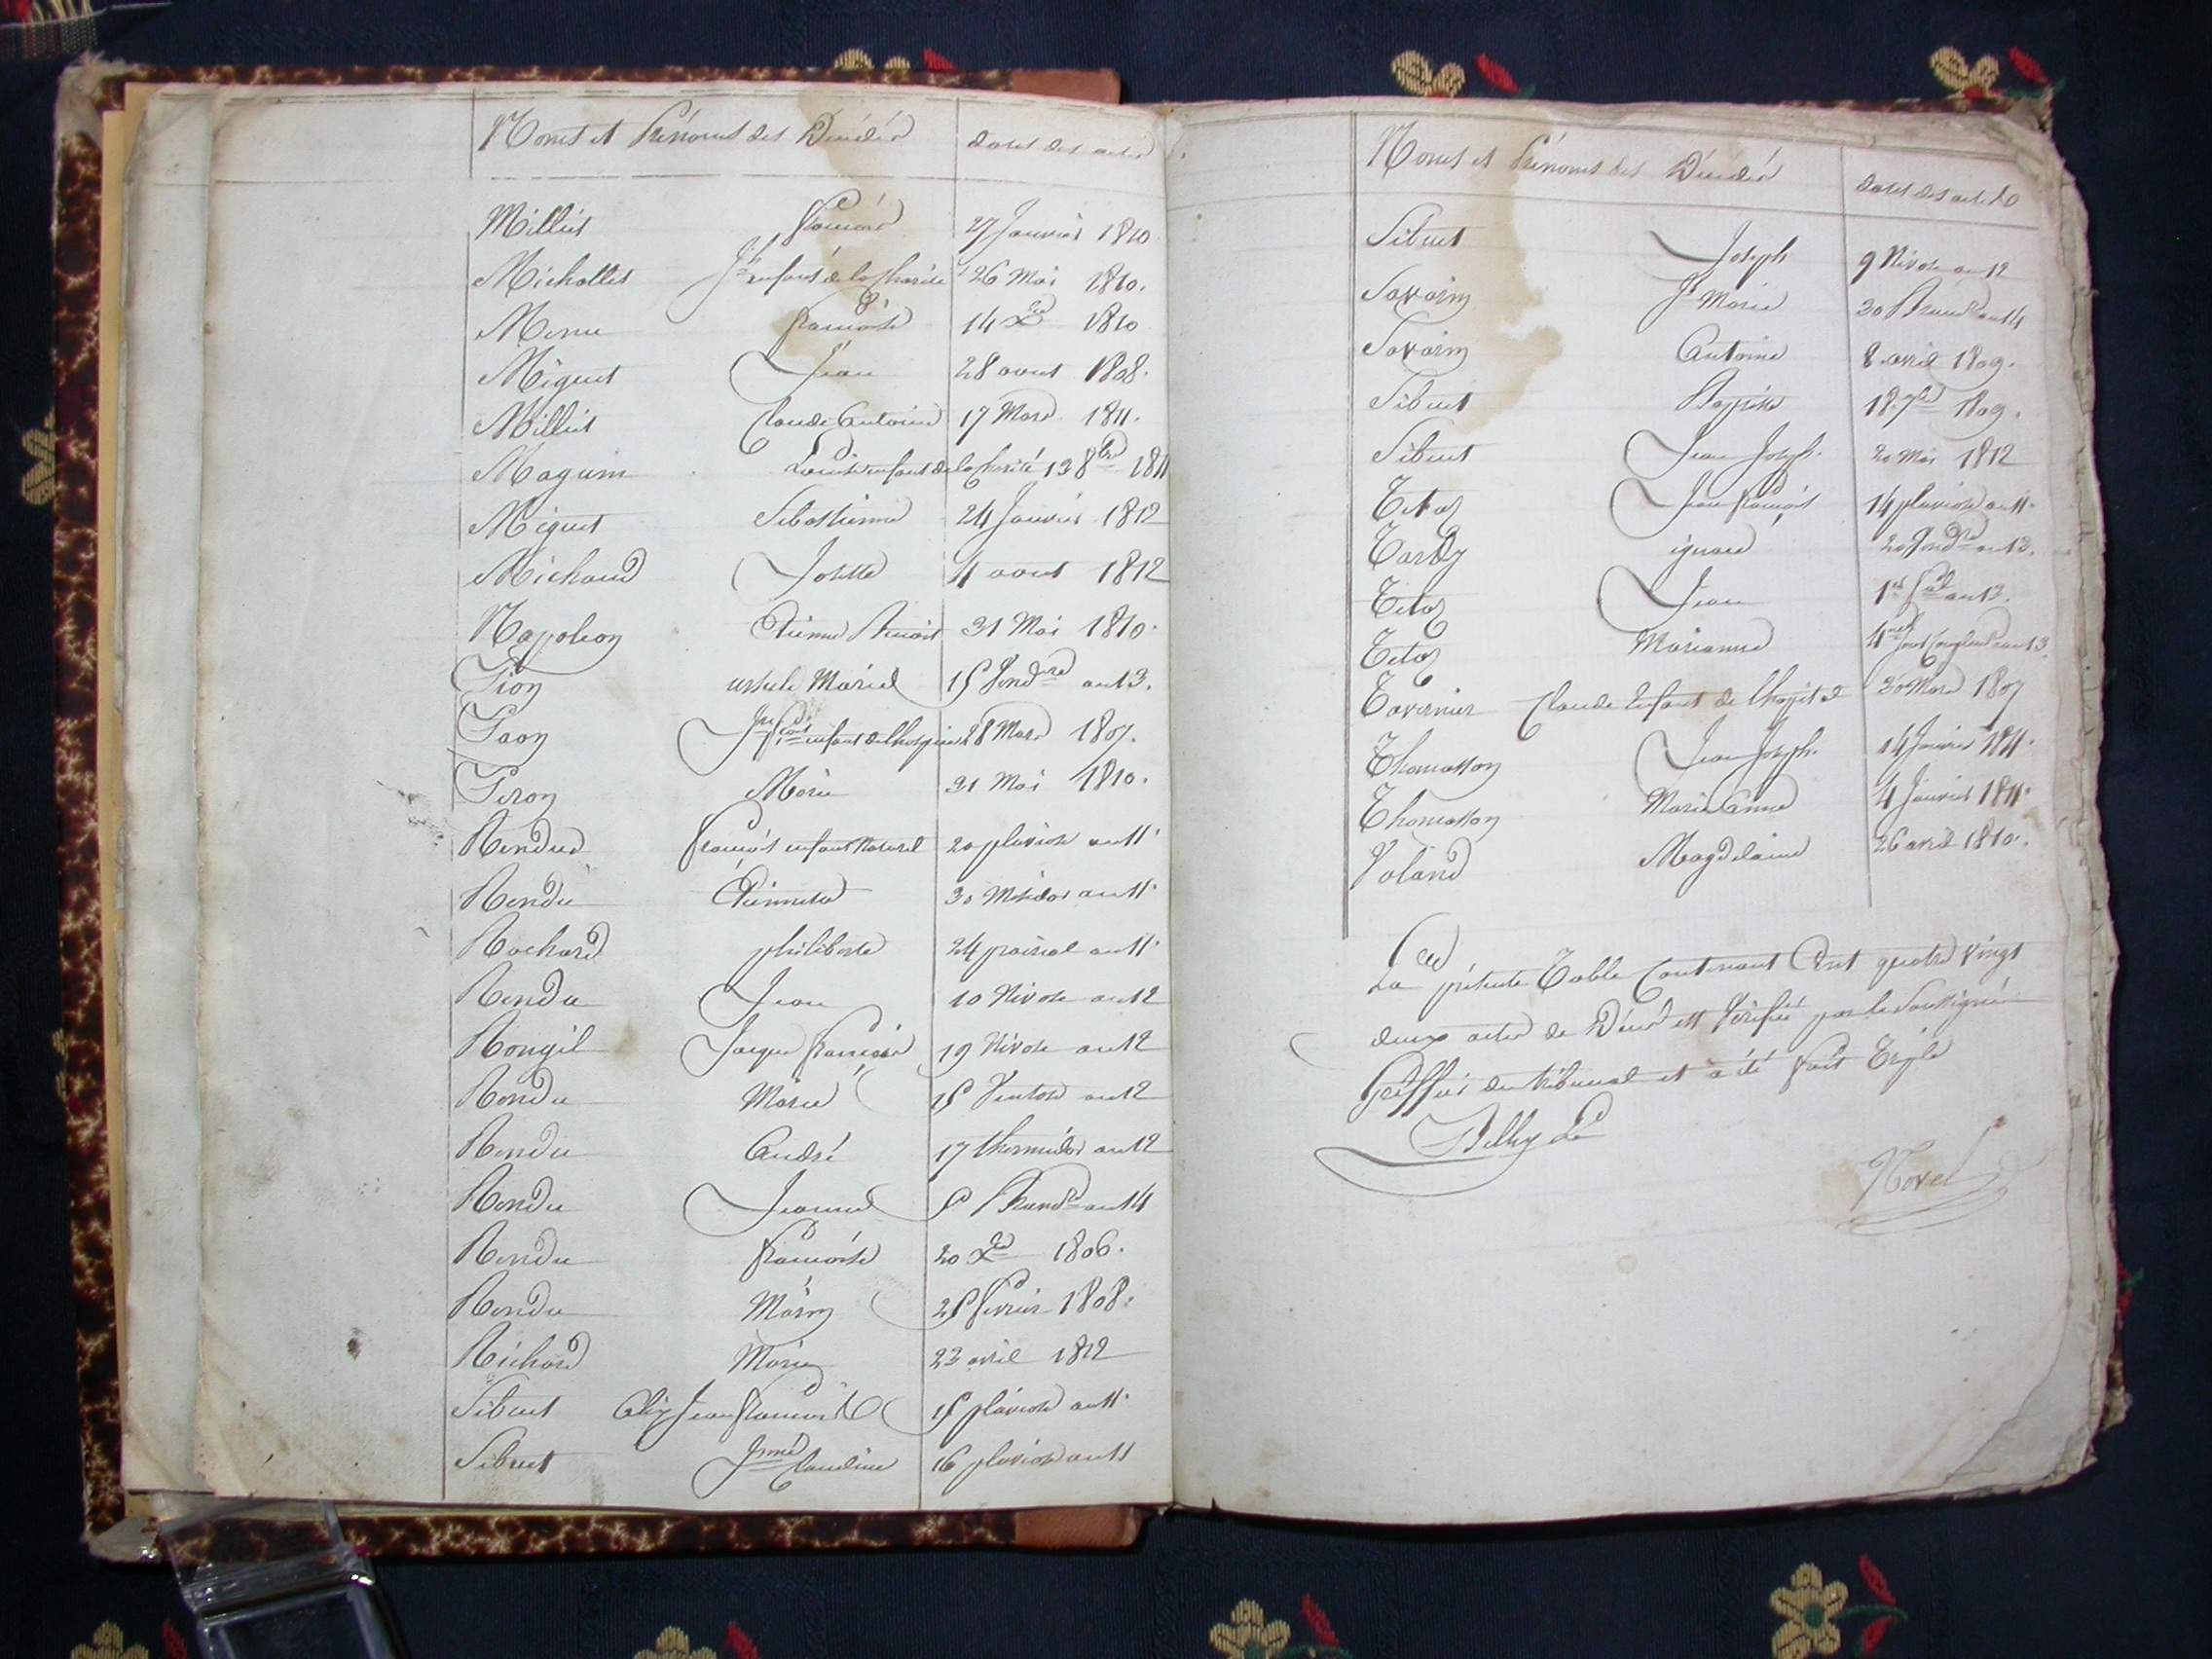 Noms et Prénoms des Décédés dates des actes
Milliet François 27 Janvier 1810
Michallet Jh enfant de la Charité 26 Mai 1810.
Menu françoise 14 Xbre 1810
Miguet Jean 28 aout 1808.
Milliet Claude Antoine 17 Mars 1811.
Magnin Louise enfant de la charité 13 8bre 1811
Miguet Sebastienne 24 Janvier 1812
Michaud Josette 4 aout 1812
Napoleon Etienne Benoit 31 Mai 1810.
Pion ursule Marie 15 Vendre an 13.
Paon enfant de l'hospice 28 Mars 1807.
Peron Marie 31 Mai 1810.
Rendu François enfant naturel 20 pluviose an 11.
Rendu Etiennette 30 Messidor an 11.
Rochard philiberte 24 prairial an 11.
Rendu Jean 10 Nivose an 12
Rongil Jacques François 19 Nivose an 12
Rendu Marie 15 Ventose an 12
Rendu André 17 thermidor an 12
Rendu Jeanne 5 Brumre an 14
Rendu françoise 20 Xbre 1806.
Rendu Marin 25 fevrier 1808.
Richard Marie 23 avril 1812
Sibuet Alix Jean François 15 pluviose an 11.
Sibuet Jeanne Claudine 16 pluviose an 11
Noms et Prénoms des Décédés dates des actes
Sibuet Joseph 9 Nivose an 12
Savarin Jh Marie 30 Brumre an 14
Savarin Antoine 8 avril 1809.
Sibuet Baptiste 18 7bre 1809.
Sibuet Jean Joseph. 20 Mai 1812
Tetaz Jean François 14 pluviose an 11.
Tardy ignace 20 Vendre an 13.
Tetaz Jean 1er an 13.
Tetaz Marianne 4me Jour Complemre an 13.
Tavernier Claude Enfant de l'hopital 30 Mars 1807
Thomasson Jean Joseph. 14 Janvier 1811.
Thomasson Marie Anne 4 Janvier 1811.
Voland Magdelaine 26 avril 1810.
La présente Table Contenant Cent quatre vingt
deux actes de Décès est Vérifiée par le Soussigné
Greffier du tribunal et a été fait Triple
Novel